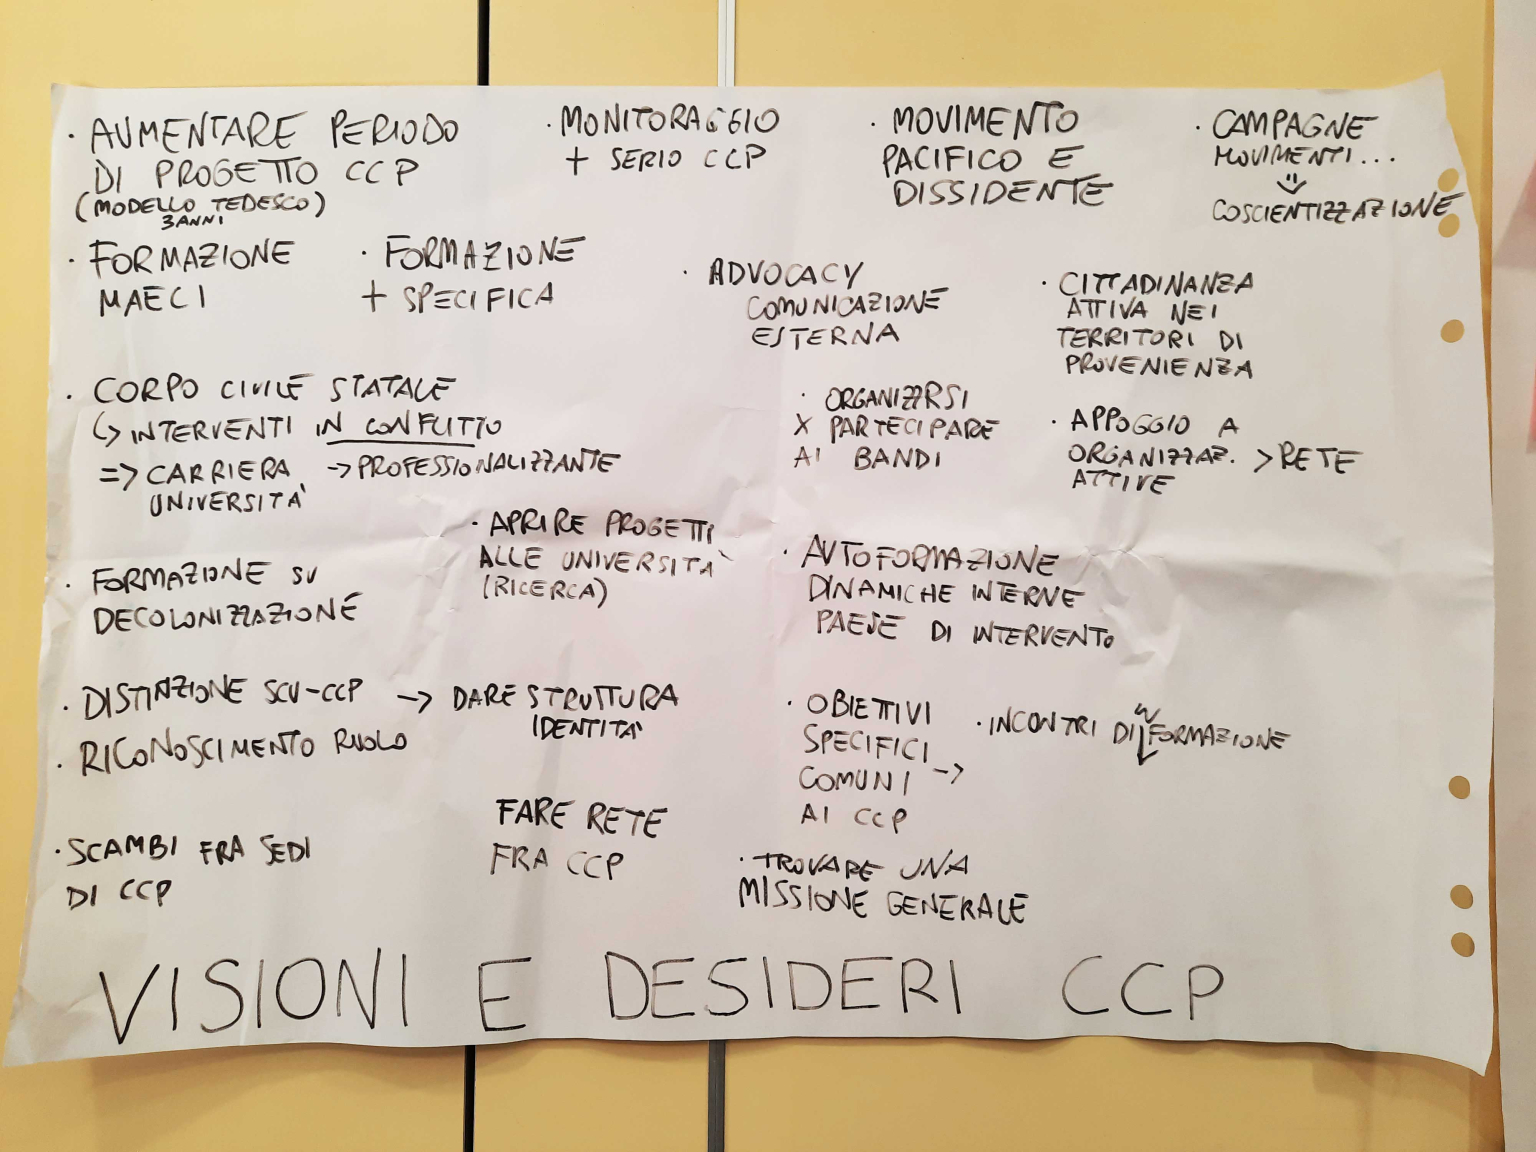 · AUMENTARE PERIODO
DI PROGETTO CCP
(MODELLO TEDESCO)
3 ANNI
· MONITORAGGIO
+ SERIO CCP
· MOVIMENTO
PACIFICO E
DISSIDENTE
· CAMPAGNE
MOVIMENTI...
COSCIENTIZZAZIONE
· FORMAZIONE
MAECI
· FORMAZIONE
+ SPECIFICA
· ADVOCACY
COMUNICAZIONE
ESTERNA
· CITTADINANZA
ATTIVA NEI
TERRITORI DI
PROVENIENZA
· CORPO CIVILE STATALE
↳ INTERVENTI IN CONFLITTO
=> CARRIERA -> PROFESSIONALIZZANTE
UNIVERSITA'
· ORGANIZZRSI
X PARTECIPARE
AI BANDI
· APPOGGIO A
ORGANIZZAZ. > RETE
ATTIVE
· APRIRE PROGETTI
ALLE UNIVERSITA'
(RICERCA)
· FORMAZIONE SU
DECOLONIZZAZIONE
· AUTOFORMAZIONE
DINAMICHE INTERNE
PAESE DI INTERVENTO
· DISTINZIONE SCU-CCP -> DARE STRUTTURA
IDENTITA'
· RICONOSCIMENTO RUOLO
· OBIETTIVI
SPECIFICI
COMUNI ->
AI CCP
· INCONTRI DI FORMAZIONE
· SCAMBI FRA SEDI
DI CCP
FARE RETE
FRA CCP
· TROVARE UNA
MISSIONE GENERALE
VISIONI E DESIDERI CCP